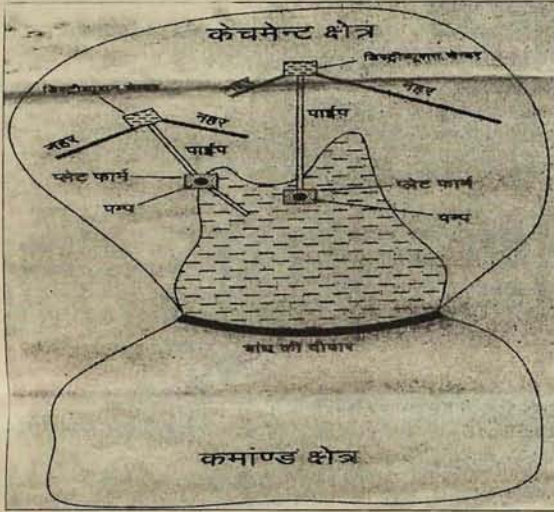 केचमेन्ट क्षेत्र
डिस्ट्रीब्यूशन चेम्बर
नहर
नहर
पाईप
डिस्ट्रीब्यूशन चेम्बर
नहर
नहर
पाईप
प्लेट फार्म
पम्प
प्लेट फार्म
पम्प
बांध की दीवार
कमांण्ड क्षेत्र